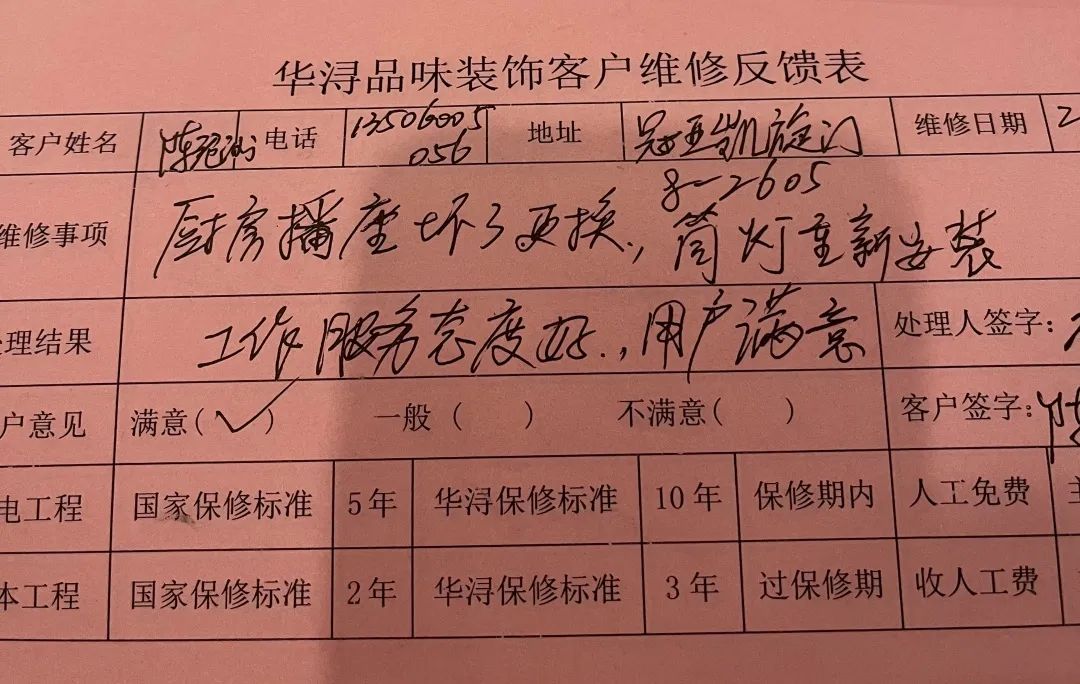 华浔品味装饰客户维修反馈表
客户姓名 陈 电话 13506005056 地址 冠亚凯旋门 8-2605 维修日期 2
维修事项 厨房播座坏了更换，筒灯重新安装
处理结果 工作服务态度好，用户满意 处理人签字：
户意见 满意(✓) 一般( ) 不满意( ) 客户签字：陈
电工程 国家保修标准 5年 华浔保修标准 10年 保修期内 人工免费 主
本工程 国家保修标准 2年 华浔保修标准 3年 过保修期 收人工费